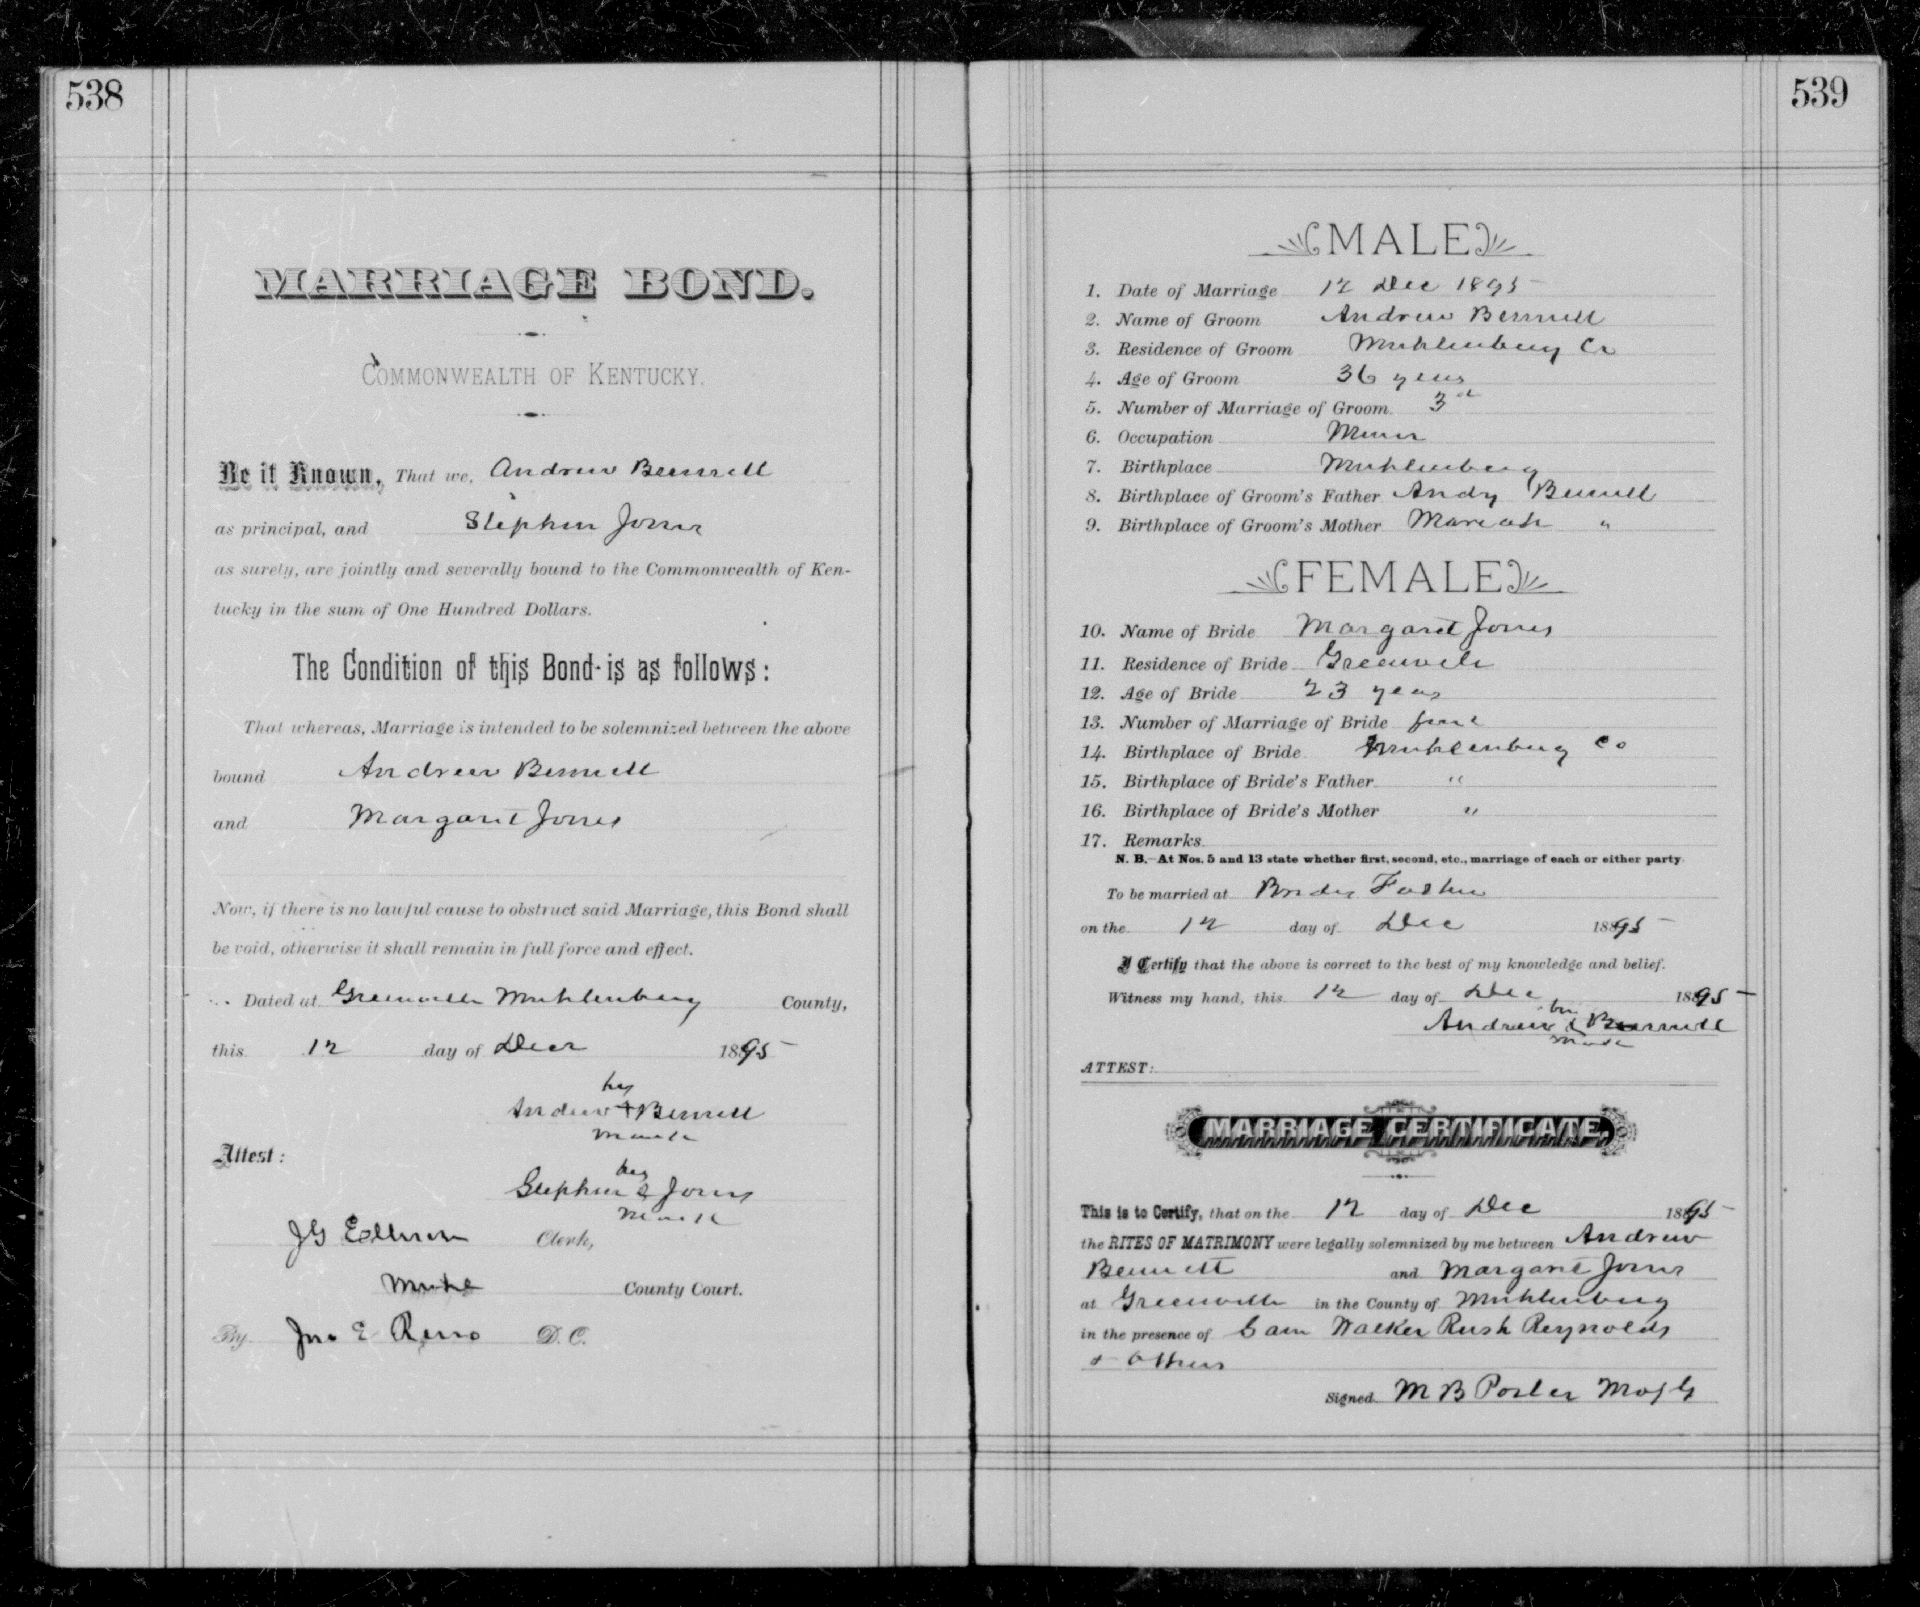 538
MARRIAGE BOND.
COMMONWEALTH OF KENTUCKY.
Be it Known, That we, Andrew Bennett
as principal, and Stephen Jones
as surety, are jointly and severally bound to the Commonwealth of Ken-
tucky in the sum of One Hundred Dollars.
The Condition of this Bond is as follows:
That whereas, Marriage is intended to be solemnized between the above
bound Andrew Bennett
and Margaret Jones
Now, if there is no lawful cause to obstruct said Marriage, this Bond shall
be void, otherwise it shall remain in full force and effect.
Dated at Greenville Muhlenberg County,
this 12 day of Decr 1895
his
Andrew + Bennett
mark
Attest:
his
Stephen x Jones
mark
JG Ellison Clerk,
Muhl County Court.
By Jno E Reno D. C.
539
MALE
1. Date of Marriage 12 Dec 1895
2. Name of Groom Andrew Bennett
3. Residence of Groom Muhlenberg Co
4. Age of Groom 36 years
5. Number of Marriage of Groom 3d
6. Occupation Miner
7. Birthplace Muhlenberg
8. Birthplace of Groom's Father Andy Bennett
9. Birthplace of Groom's Mother Mariah "
FEMALE
10. Name of Bride Margaret Jones
11. Residence of Bride Greenville
12. Age of Bride 23 years
13. Number of Marriage of Bride
14. Birthplace of Bride Muhlenberg Co
15. Birthplace of Bride's Father "
16. Birthplace of Bride's Mother "
17. Remarks
N. B.—At Nos. 5 and 13 state whether first, second, etc., marriage of each or either party.
To be married at Brides Father
on the 12 day of Dec 1895
I Certify that the above is correct to the best of my knowledge and belief.
Witness my hand, this 12 day of Dec 1895
his
Andrew x Bennett
mark
ATTEST:
MARRIAGE CERTIFICATE.
This is to Certify, that on the 12 day of Dec 1895
the RITES OF MATRIMONY were legally solemnized by me between Andrew
Bennett and Margaret Jones
at Greenville in the County of Muhlenberg
in the presence of Sam Walker Rush Reynolds
+ others
Signed M B Porter